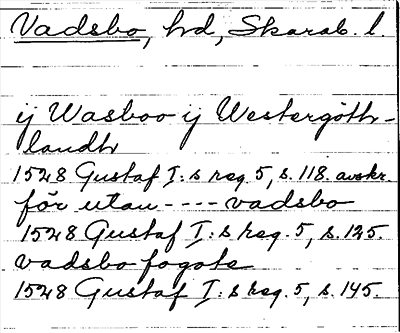 Vadsbo, hd, Skarab. l.
ij Wasboo ij Westergöth-
landh
1528 Gustaf I:s reg. 5, s. 118. avskr.
för utan ---- vadsbo
1528 Gustaf I:s reg. 5, s. 125.
vadsbo fogote
1528 Gustaf I:s reg. 5, s. 145.